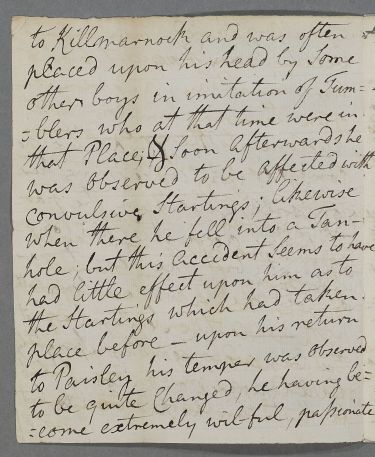 to Killmarnock and was often
placed upon his head by Some
other boys in imitation of Tum-
-blers who at that time were in
that Place; & Soon afterwards he
was observed to be affected with
Convulsive Startings; likewise
when there he fell into a Tan-
hole; but this accident Seems to have
had little effect upon him as to
the Startings which had taken
place before – upon his return
to Paisley his temper was observed
to be quite Changed, he having be-
-come extremely wil-ful, passionate